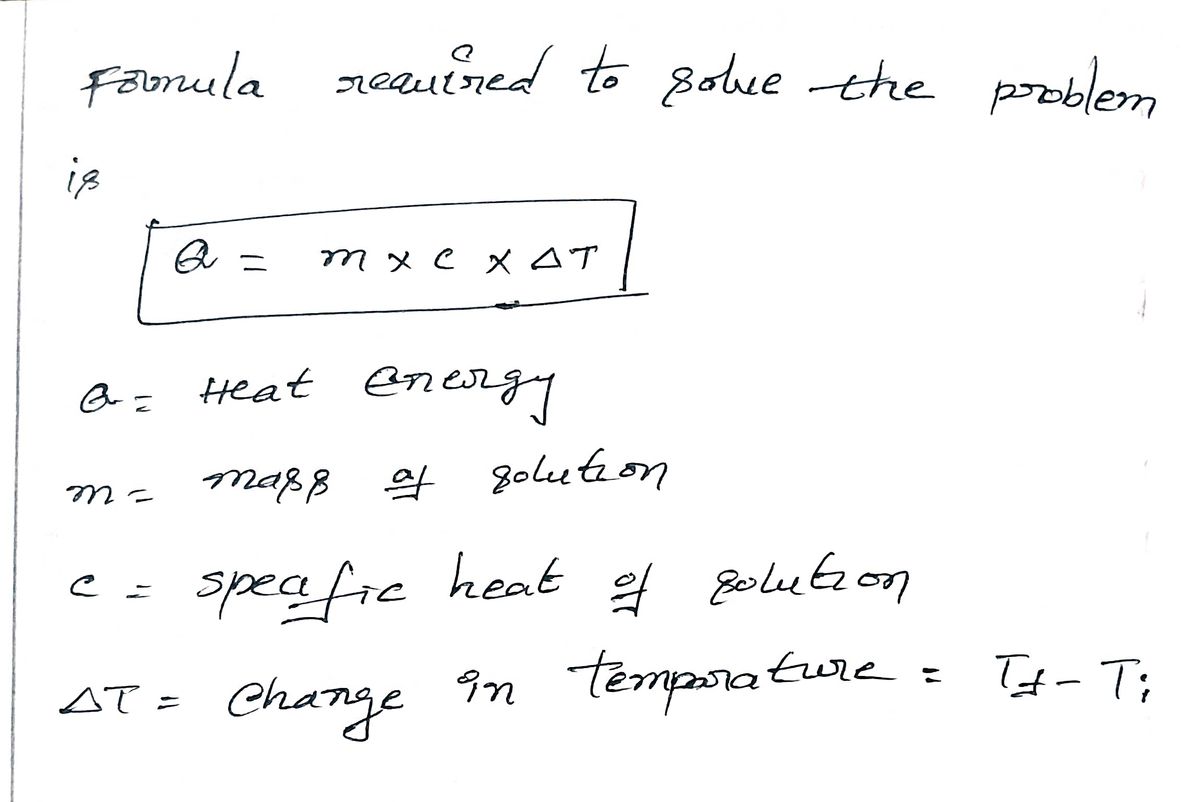 Formula required to solve the problem
is
Q = m × c × ΔT
Q = Heat energy
m = mass of solution
c = specific heat of solution
ΔT = change in temprature = Tf - Ti